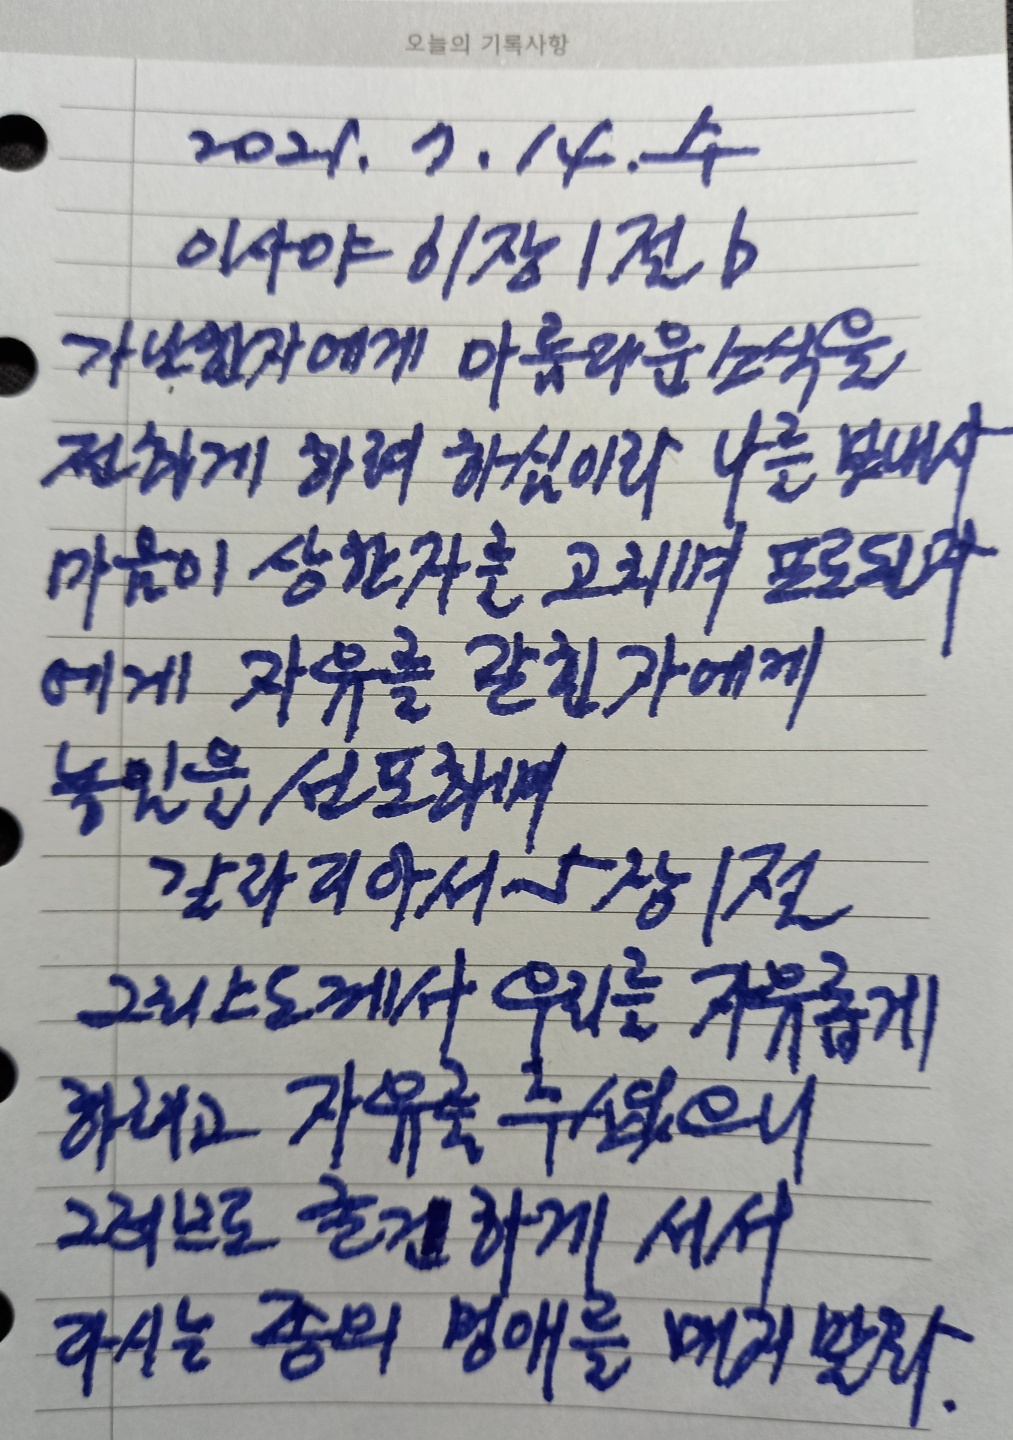 오늘의 기록사항
2021. 7. 14. 수
이사야 61장 1절 b
가난한자에게 아름다운소식을
전하게 하려 하심이라 나를 보내사
마음이 상한자를 고치며 포로된자
에게 자유를 갇힌자에게
놓임을 선포하며
갈라디아서 5장 1절
그리스도께서 우리를 자유롭게
하려고 자유를 주셨으니
그러므로 굳건하게 서서
다시는 종의 멍에를 메지 말라.